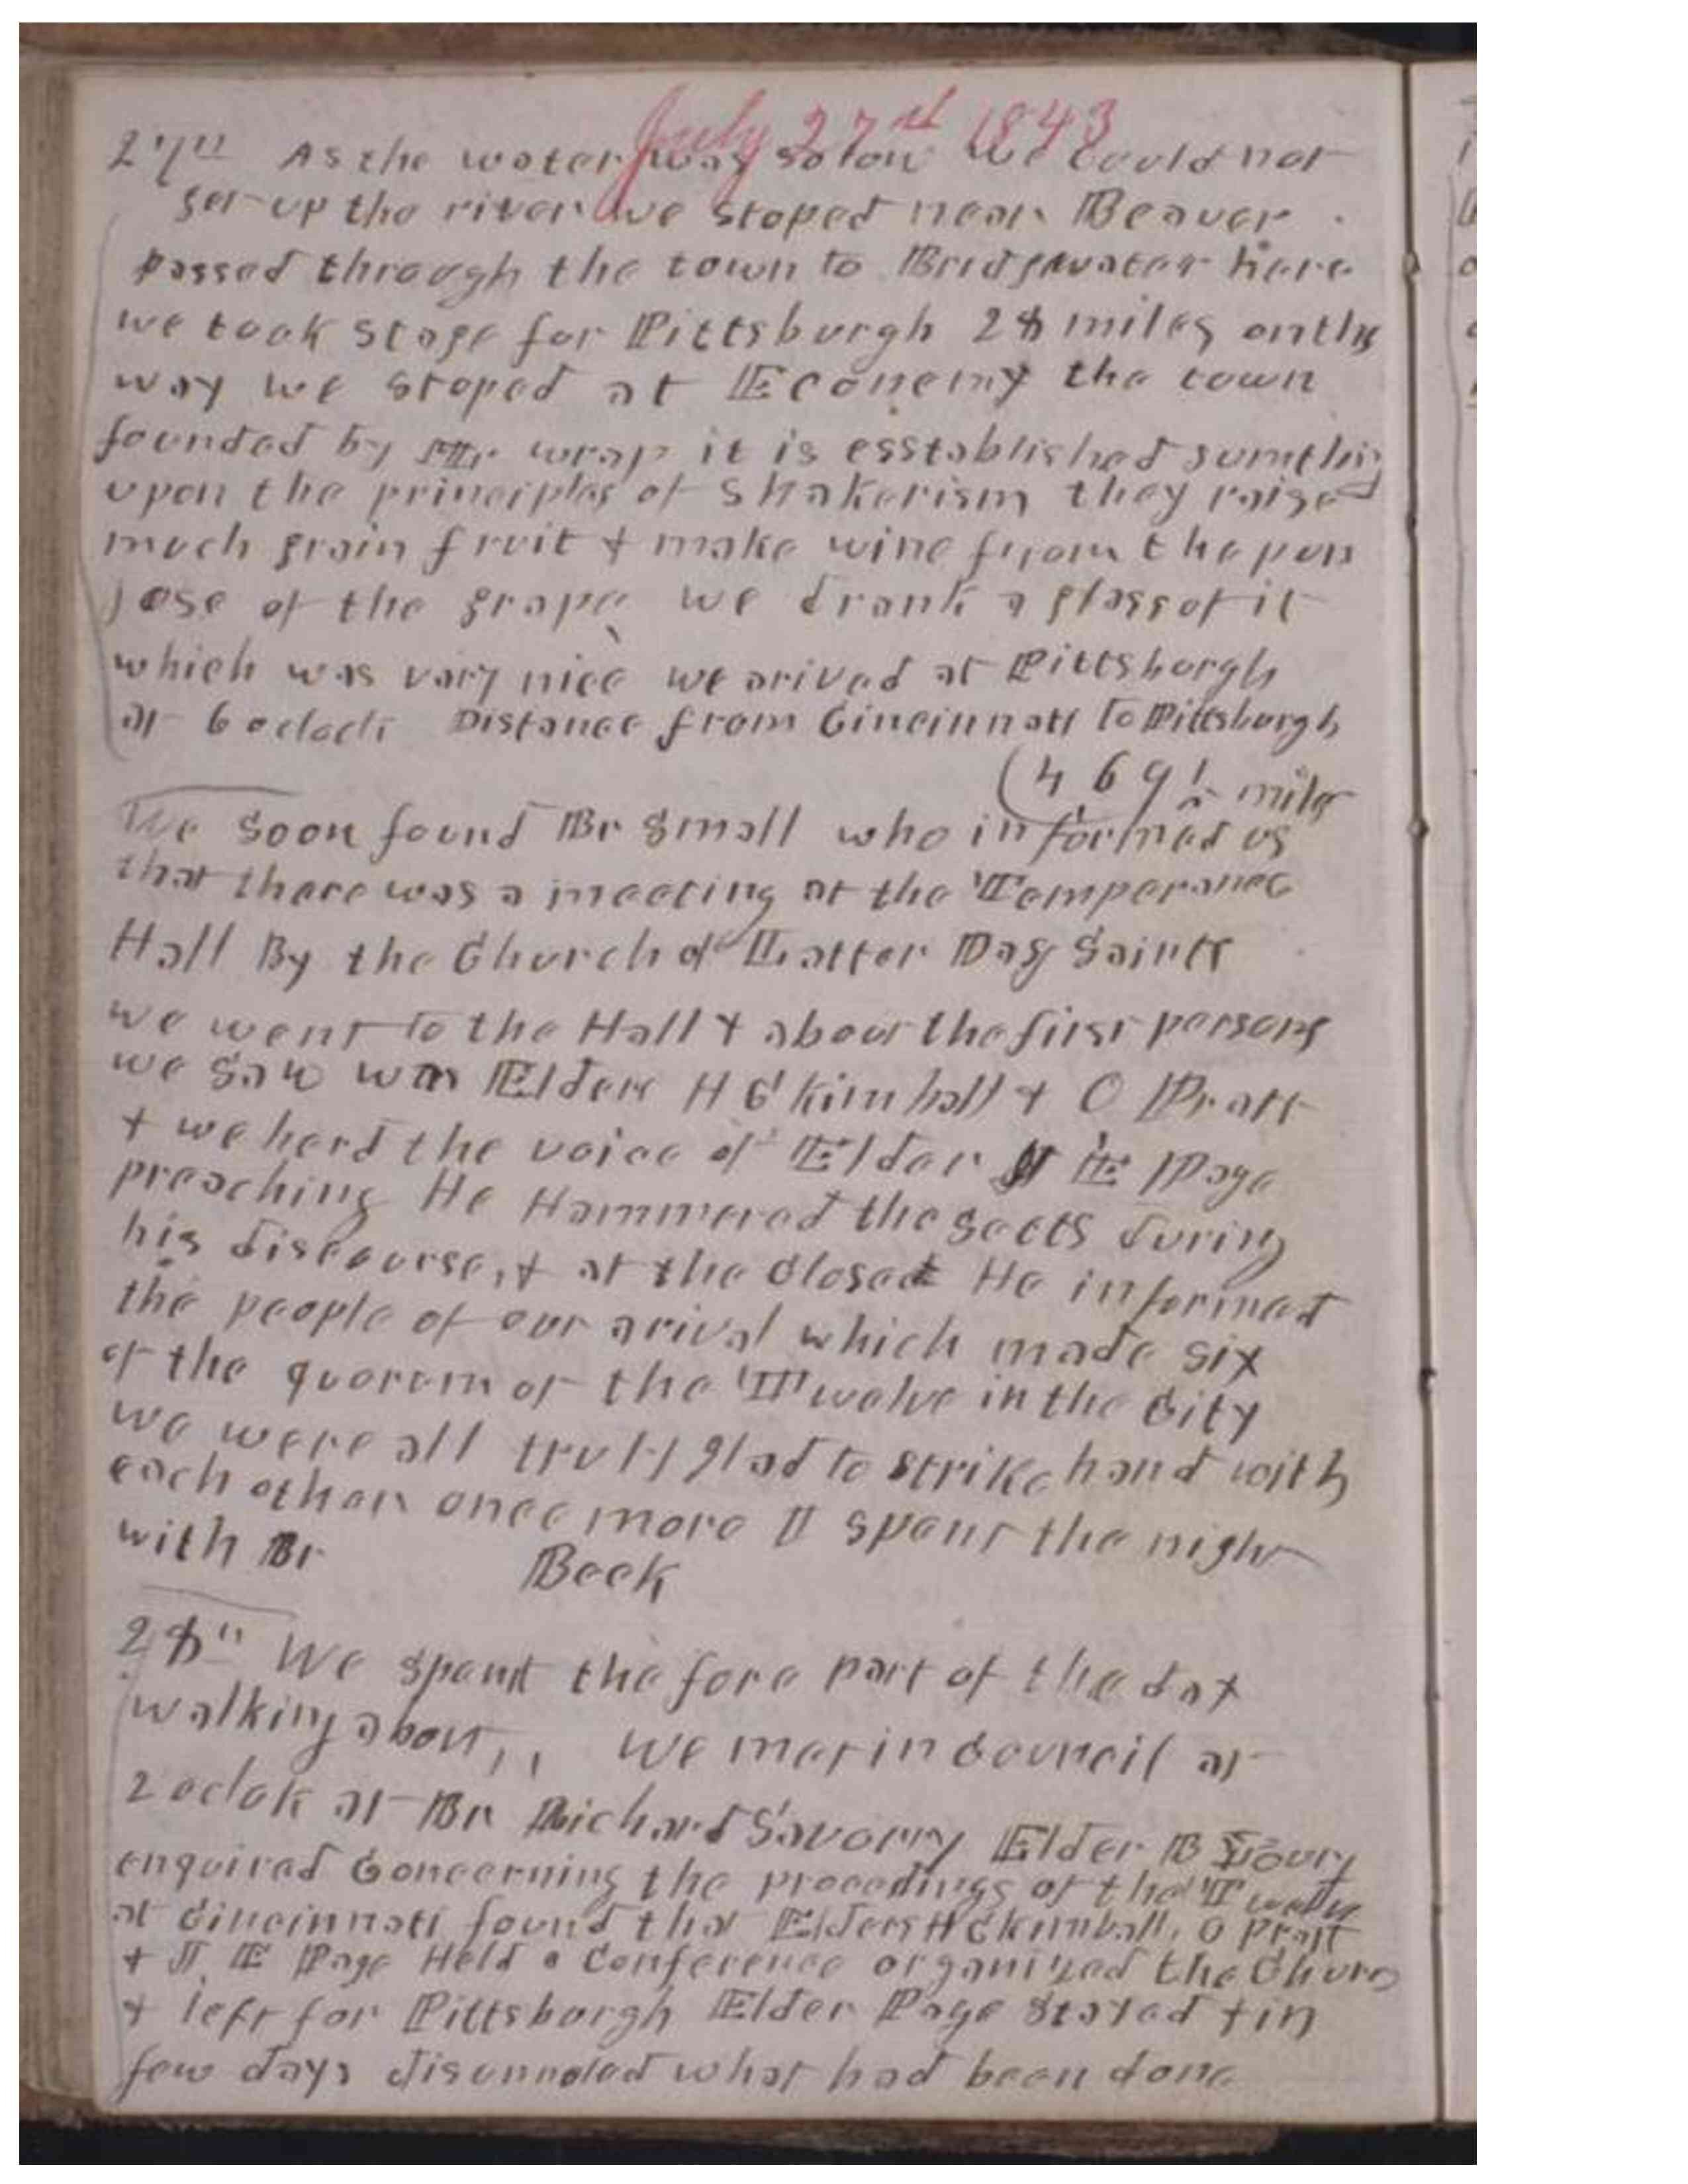 July 27th 1843
27th As the water was so low we could not
get up the river we stoped near Beaver
passed through the town to Bridgewater here
we took stage for Pittsburgh 28 miles on the
way we stoped at Economy the town
founded by Mr wrap it is esstablished sumthing
upon the principles of Shakerism they raised
much grain fruit & make wine from the pure
juse of the grape we drank a glass of it
which was vary nice we arived at Pittsburgh
at 6 oclock Distance from Cincinnati to Pittsburgh
(469 miles
We soon found Br Small who informed us
that there was a meeting at the Temperance
Hall By the Church of Latter Day Saints
we went to the Hall & about the first persons
we saw was Elders H C Kimball & O Pratt
& we herd the voice of Elder J E Page
preaching He Hammered the sects during
his discourse, & at the closee He informed
the people of our arival which made six
of the quorum of the Twelve in the City
we were all truly glad to strike hand with
each other once more I spent the night
with Br Beck
28th We spent the fore part of the day
walking about,, We met in Council at
2 oclok at Br Richard Savory Elder B Young
enquired Concerning the procedings of the Twelve
at Cincinnati found that Elders H C Kimball, O Pratt
& J. E Page Held a Conference organized the Church
& left for Pittsburgh Elder Page stayed & in
few days disannuled what had been done